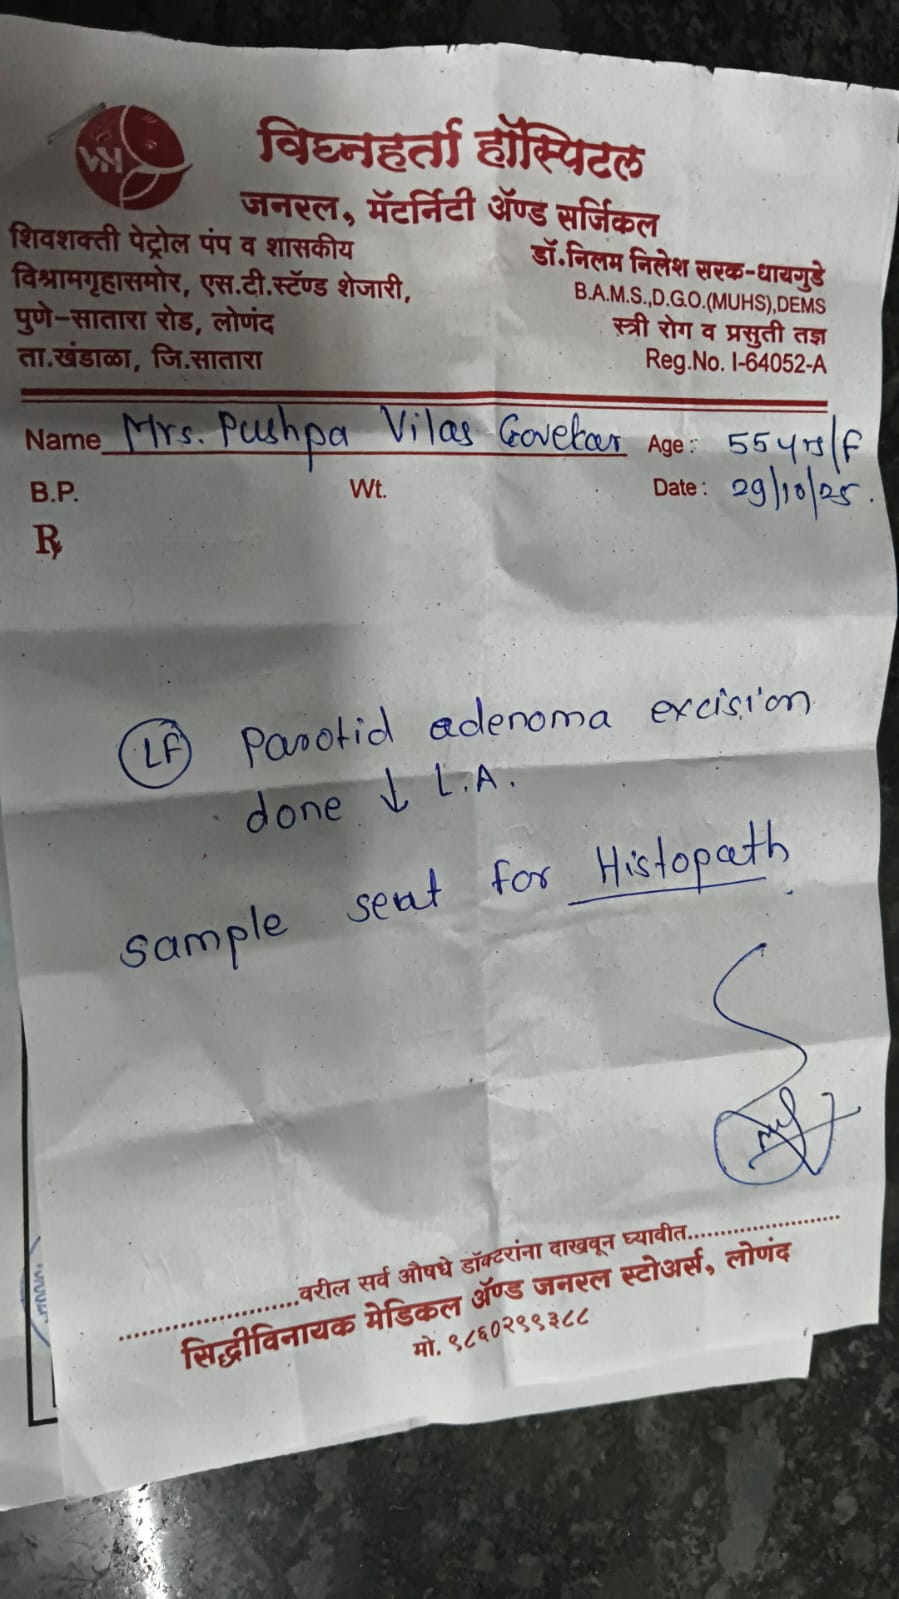 VH
विघ्नहर्ता हॉस्पिटल
जनरल, मॅटर्निटी ॲण्ड सर्जिकल
शिवशक्ती पेट्रोल पंप व शासकीय
विश्रामगृहासमोर, एस.टी.स्टॅण्ड शेजारी,
पुणे-सातारा रोड, लोणंद
ता.खंडाळा, जि.सातारा
डॉ.निलम निलेश सरक-धायगुडे
B.A.M.S.,D.G.O.(MUHS),DEMS
स्त्री रोग व प्रसुती तज्ञ
Reg.No. I-64052-A
Name Mrs. Pushpa Vilas Govekar Age : 55 yrs/F
B.P. Wt. Date : 29/10/25.
Rx
LF Parotid adenoma excision
done ↓ L.A.
sample sent for Histopath
..........वरील सर्व औषधे डॉक्टरांना दाखवून घ्यावीत..........
सिद्धीविनायक मेडिकल ॲण्ड जनरल स्टोअर्स, लोणंद
मो. ९८६०२९९३८८